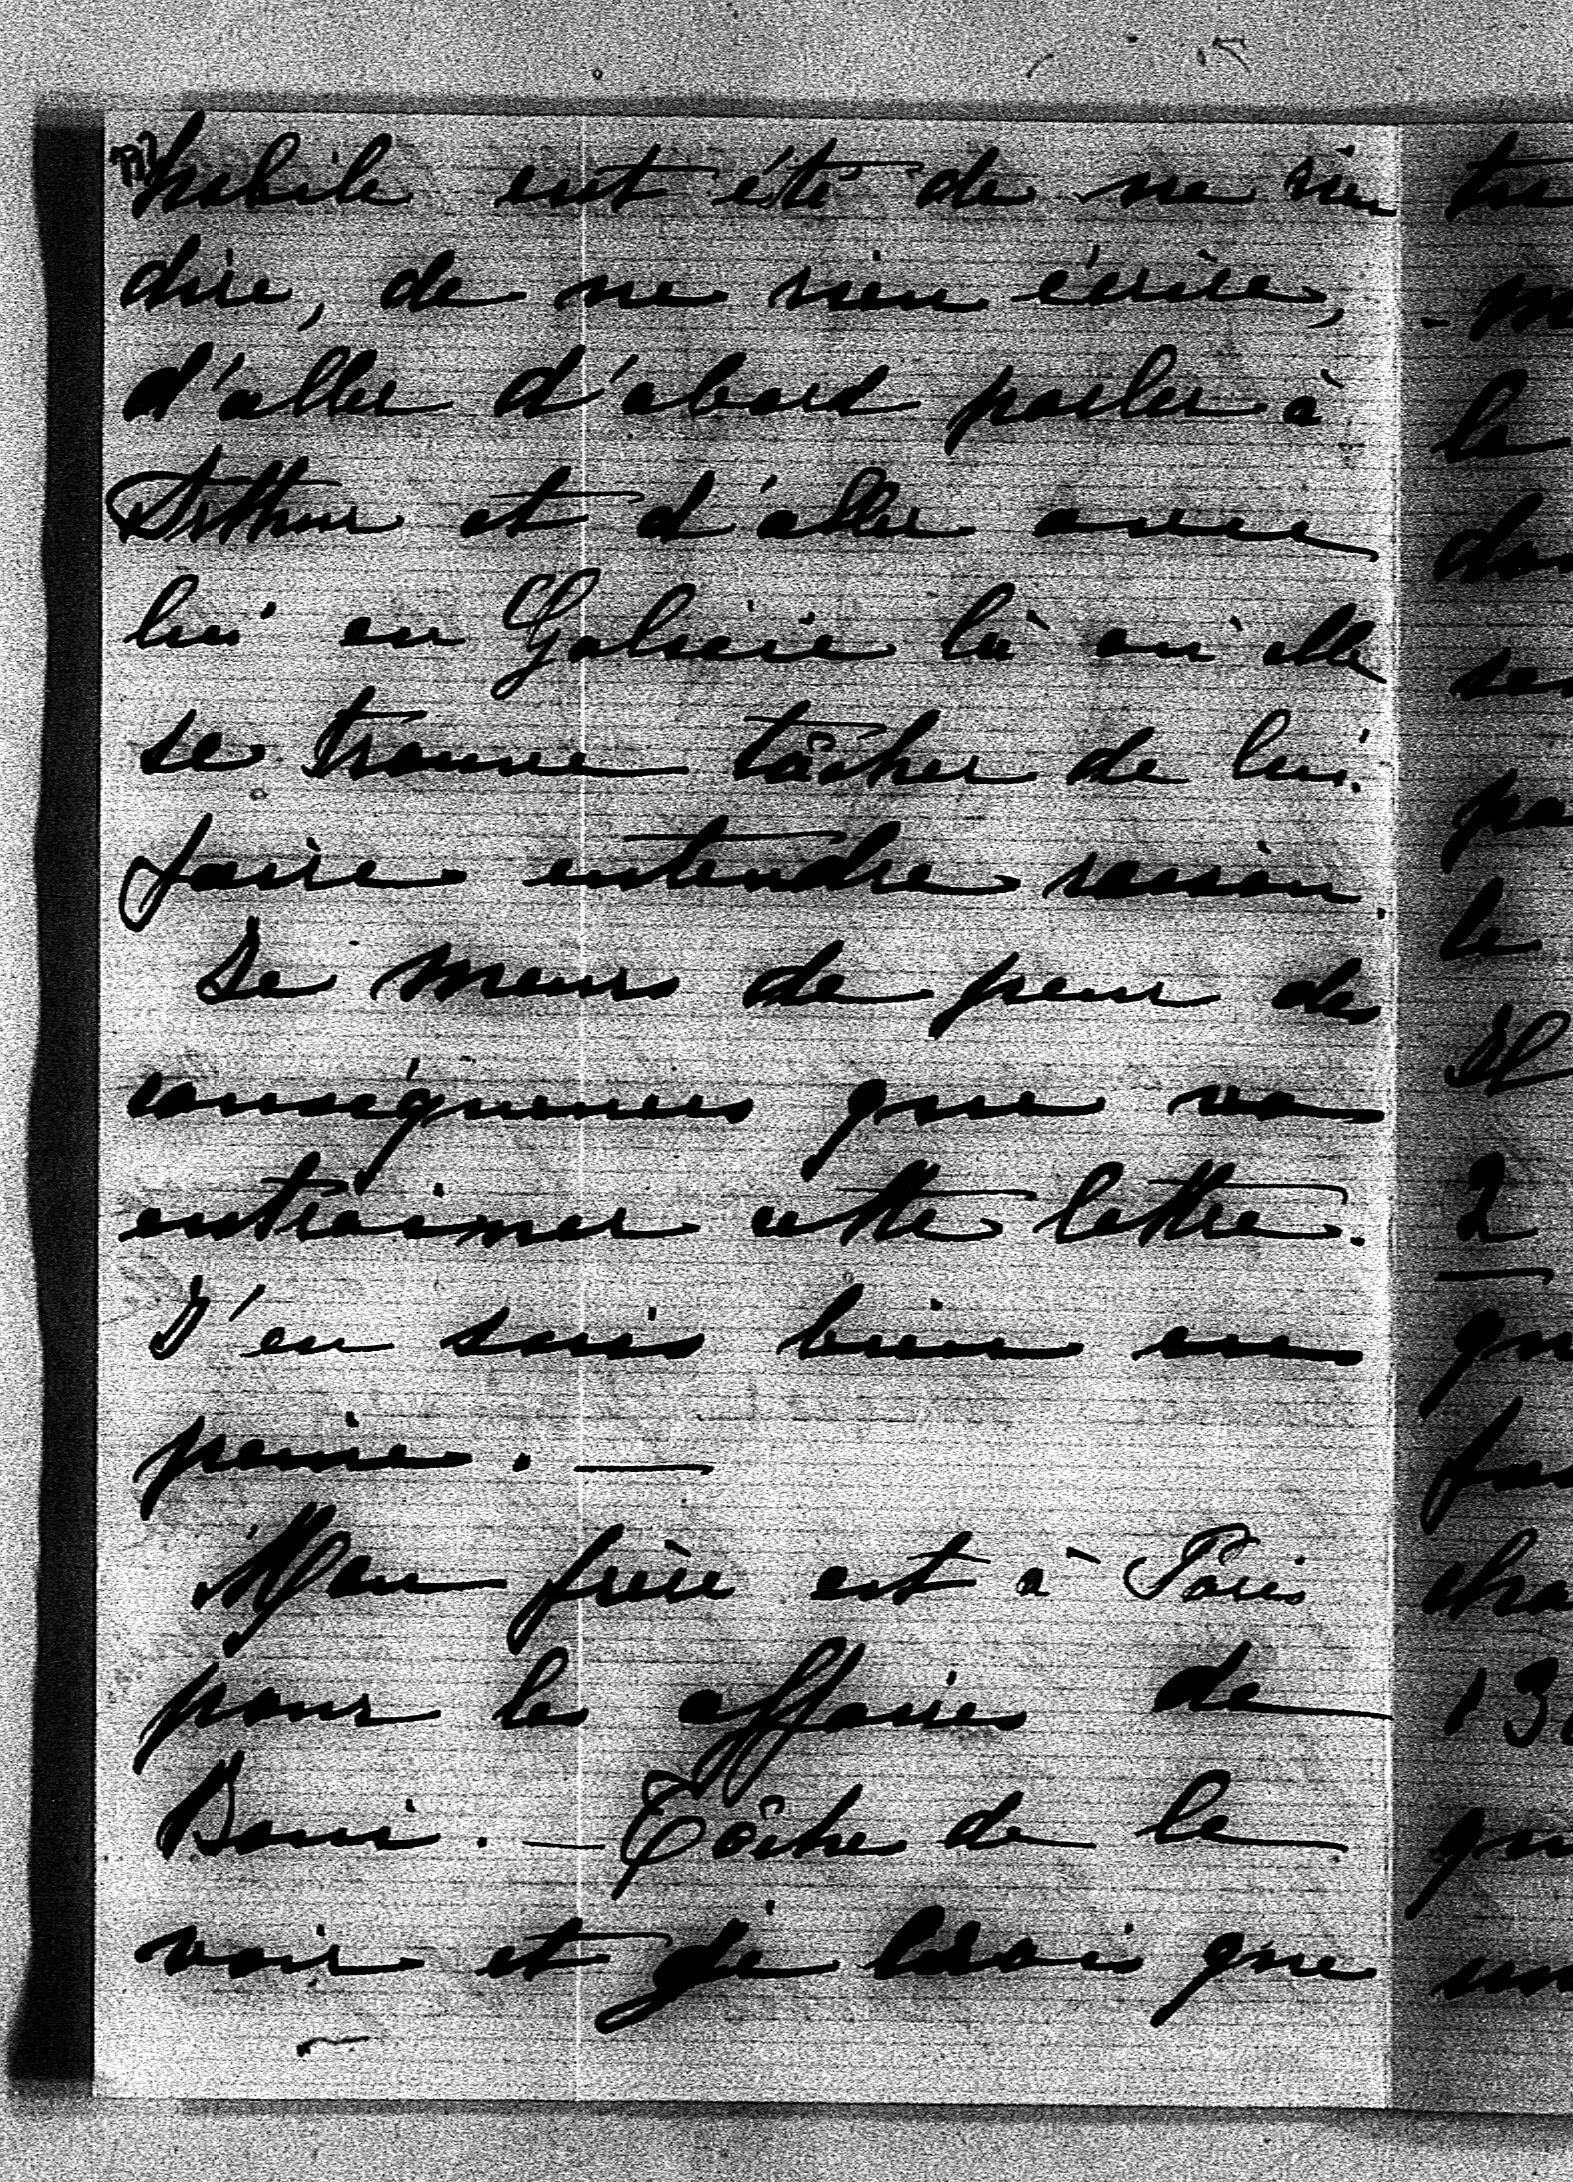 habile eut été de ne rien
dire, de ne rien écrire,
d'aller d'abord parler à
Arthur et d'aller avec
lui en Galicie là où elle
se trouve tâcher de lui
faire entendre raison.
Je meurs de peur des
conséquences que va
entrainer cette lettre.
J'en suis bien en
peine. —
Mon frère est à Paris
pour les affaires de
Boni. — Tâche de le
voir et je crois que